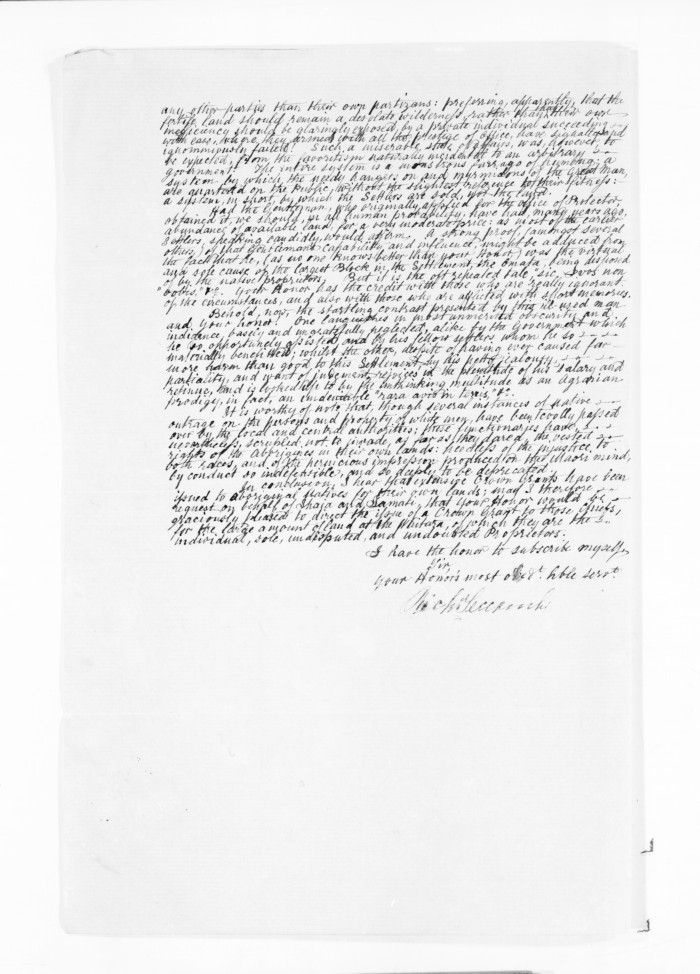 any other parties than their own partizans: preferring, apparently, that the
fertile land should remain a desolate wilderness, rather than that their own
inefficiency should be glaringly exposed by a private individual succeeding
with ease, where they armed with all the prestige of office, have signally and
ignominiously failed. Such a miserable state of affairs, was, however, to
be expected, from the favoritism naturally incidental to an arbitrary
Government. The entire system is a monstrous farrago of humbug; a
system by which the needy hangers on and myrmidons of the Great Man,
are quartered on the Public, without the slightest reference to their fitness:
a system, in short, by which the Settlers are sold, not the land.
Had the Gentleman, who originally applied for the office of Protector,
obtained it, we should, in all human probability, have had, many years ago,
abundance of available land, for a very moderate price: as most of the earlier
Settlers, speaking candidly, would affirm. A strong proof, amongst several
others, of that Gentleman's capability and influence, might be adduced from
the fact that he, (as no one knows better than your Honor) was the virtual
and sole cause of the largest Block in the Settlement, the Omata, being disposed
of by the native proprietors. But it is the oft repeated tale, "sic vos non
vobis," &c. Your Honor has the credit with those who are really ignorant
of the circumstances, and also with those who are afflicted with short memories.
Behold, now, the startling contrast presented by this ill used man
and Your honor! One languishes in most unmerited obscurity and
indigence, basely and ungratefully neglected, alike by the Government which
he so opportunely assisted and by his fellow settlers whom he so
materially benefitted; whilst the other, despite of having ever caused far
more harm than good to this Settlement by his petty jealousy,
partiality, and want of judgement, rejoices in the plenitude of his salary and
retinue, and is looked up to by the unthinking multitude as an agrarian
prodigy, in fact, an undeniable "rara avis in terris," &c.
It is worthy of note that, though several instances of native
outrage on the persons and property of white men, have been coolly passed
over by the local and central authorities; these functionaries have,
nevertheless, scrupled not to invade, as far as they dared, the vested
rights of the Aborigines in their own lands: heedless of the injustice to
both races, and of the pernicious impression produced on the Maori mind,
by conduct so indefensible, and so deeply to be deprecated.
In conclusion, I hear that extensive Crown Grants have been
issued to aboriginal natives for their own lands; may I therefore
request on behalf of Ihaia and Samati, that Your Honor would be
graciously pleased to direct the issue of a Crown Grant to those Chiefs,
for the large amount of land at the Waitara, of which they are the
individual, sole, undisputed, and undoubted Proprietors.
I have the honor to subscribe myself,
Sir,
Your Honor's most obedt. hble servt.